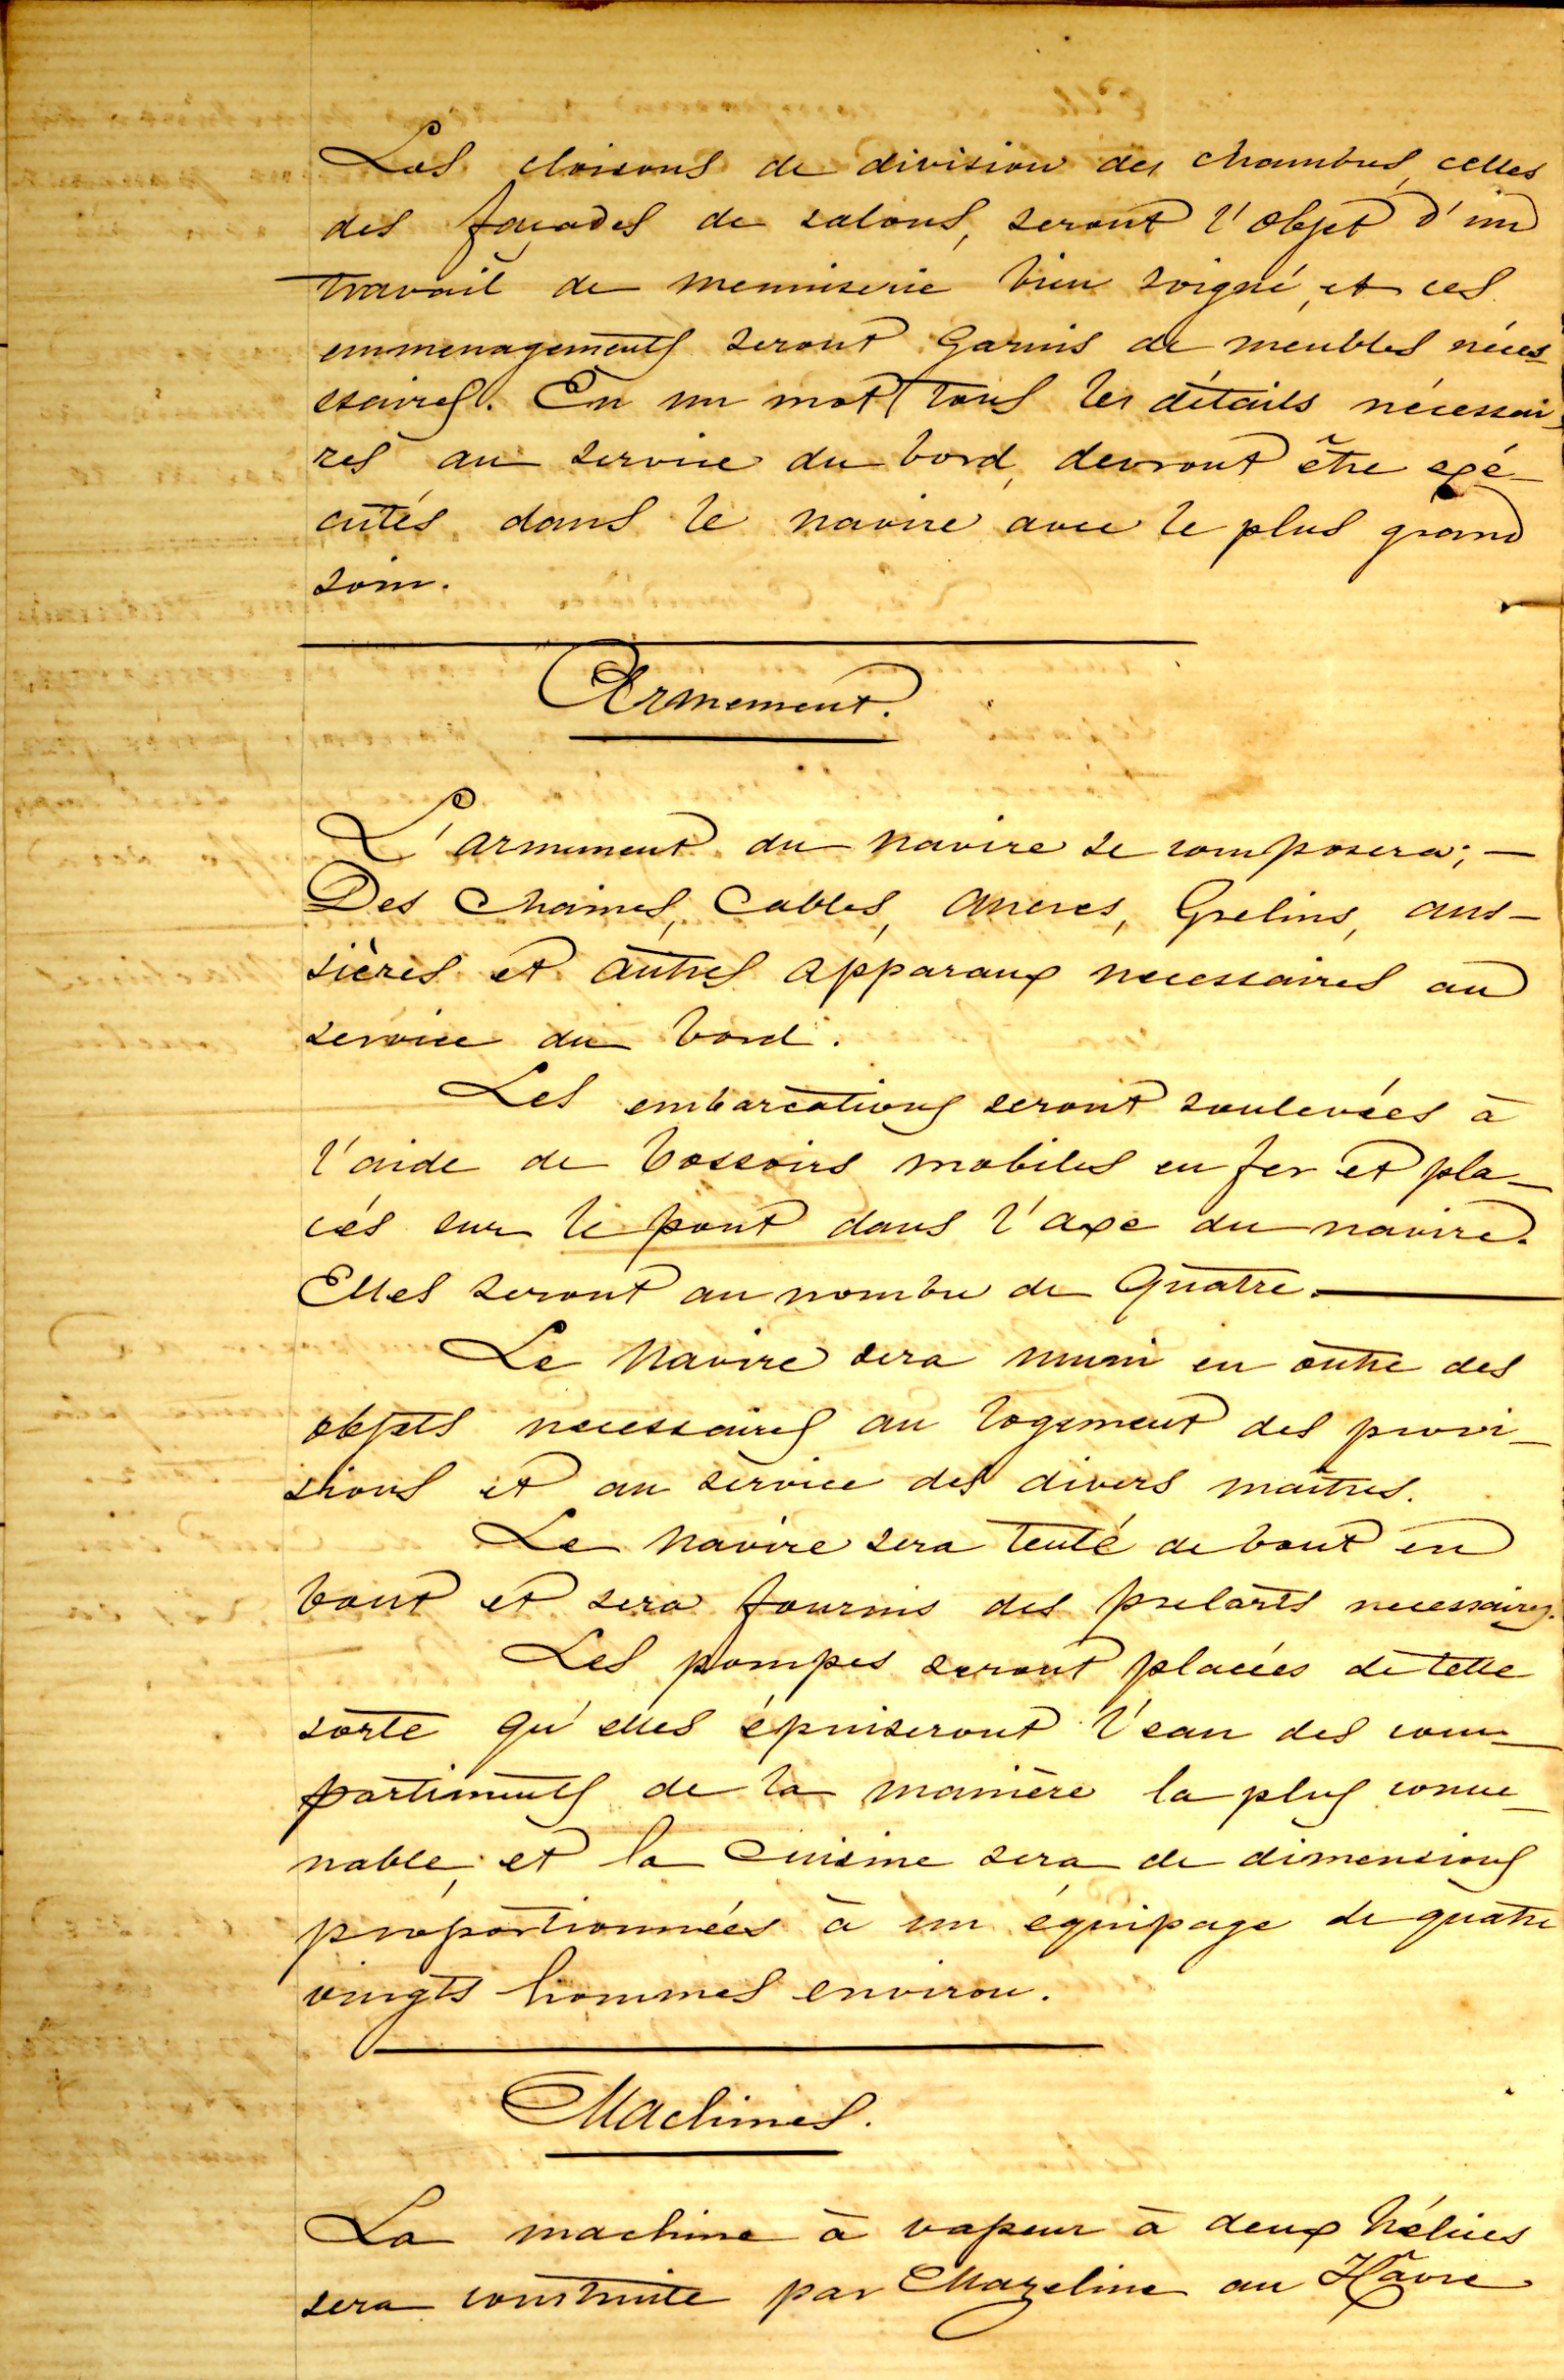 Les cloisons de division des chambres, celles
des façades de salons, seront l'objet d'un
travail de menuiserie bien soigné, et ces
emmenagements seront garnis de meubles néces-
ssaires. En un mot tous les détails nécessai-
res au service du bord, devront être exé-
cutés dans le navire avec le plus grand
soin.
Armement.
L'armement du navire se composera; —
Des Chaines, Cables, ancres, Grelins, aus-
sières et autres apparaux necessaires au
service du bord.
Les embarcations seront soulevées à
l'aide de bossoirs mobiles en fer et pla-
cés sur le pont dans l'axe du navire.
Elles seront au nombre de Quatre.
Le Navire sera muni en outre des
objets necessaires au logement des provi-
sions et au service des divers maîtres.
Le Navire sera tenté de bout en
bout et sera fournis des prelarts necessaires.
Les pompes seront placées de telle
sorte qu'elles épuiseront l'eau des com-
partiments de la manière la plus conve-
nable, et la Cuisine sera de dimensions
proportionnées à un équipage de quatre
vingts hommes environ.
Machines.
La machine à vapeur à deux hélices
sera construite par Mazeline au Hâvre